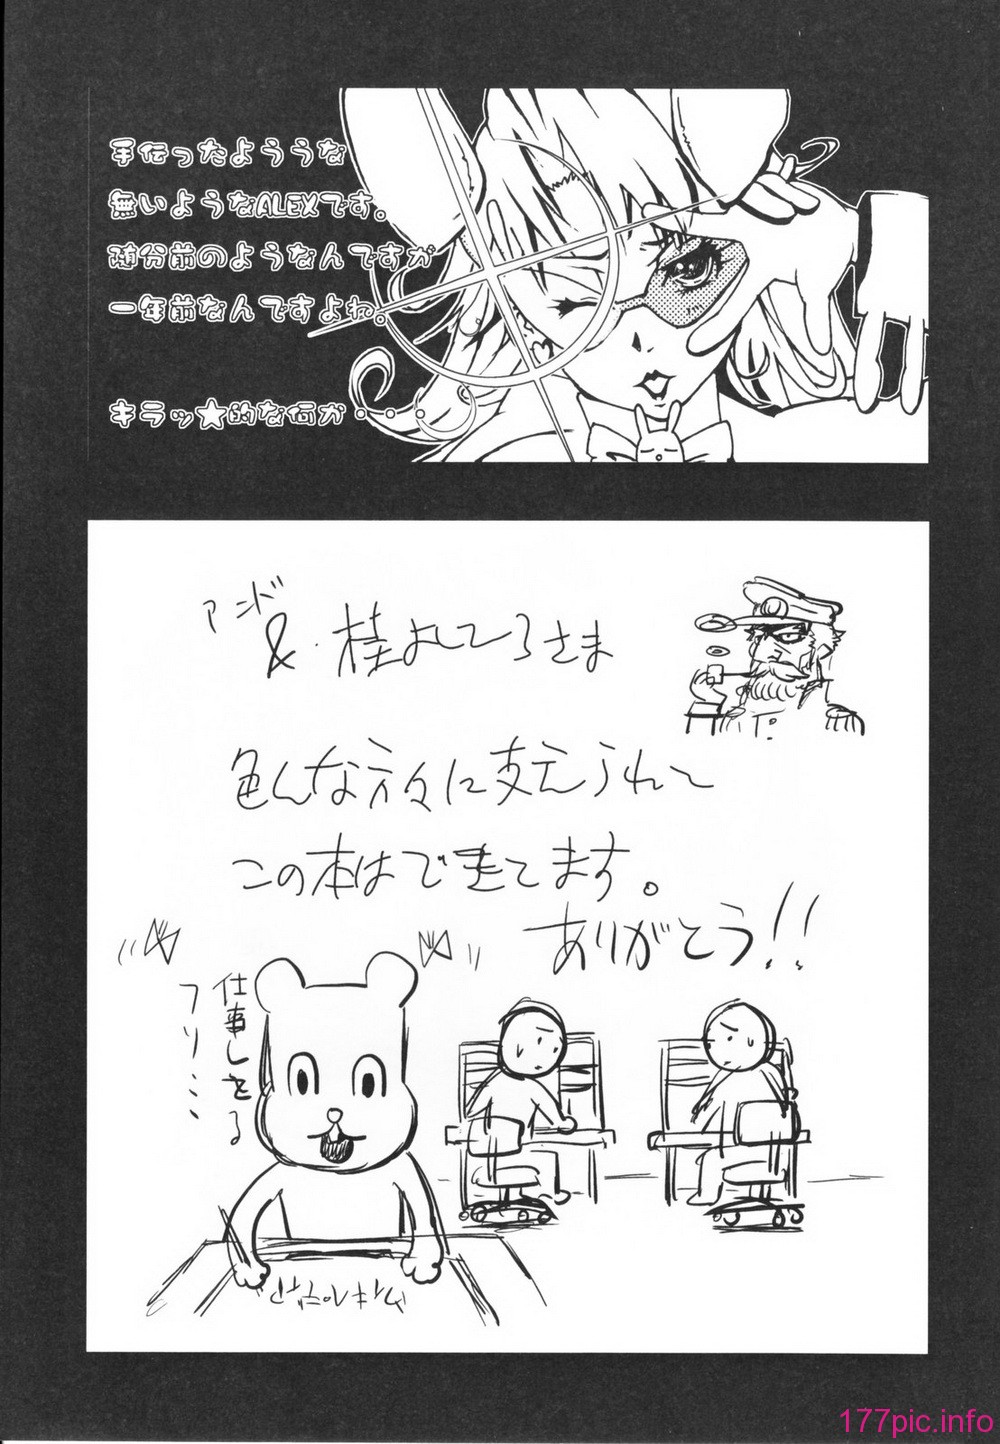 手伝ったようような
無いようなALEXです。
随分前のようなんですが
一年前なんですよね。
キラッ★的な何か・・・。
アンド
&・桂よしひろさま
色んな方々に支えられて
この本はできてます。
ありがとう!!
仕事してる
フリ・・・
177pic.info